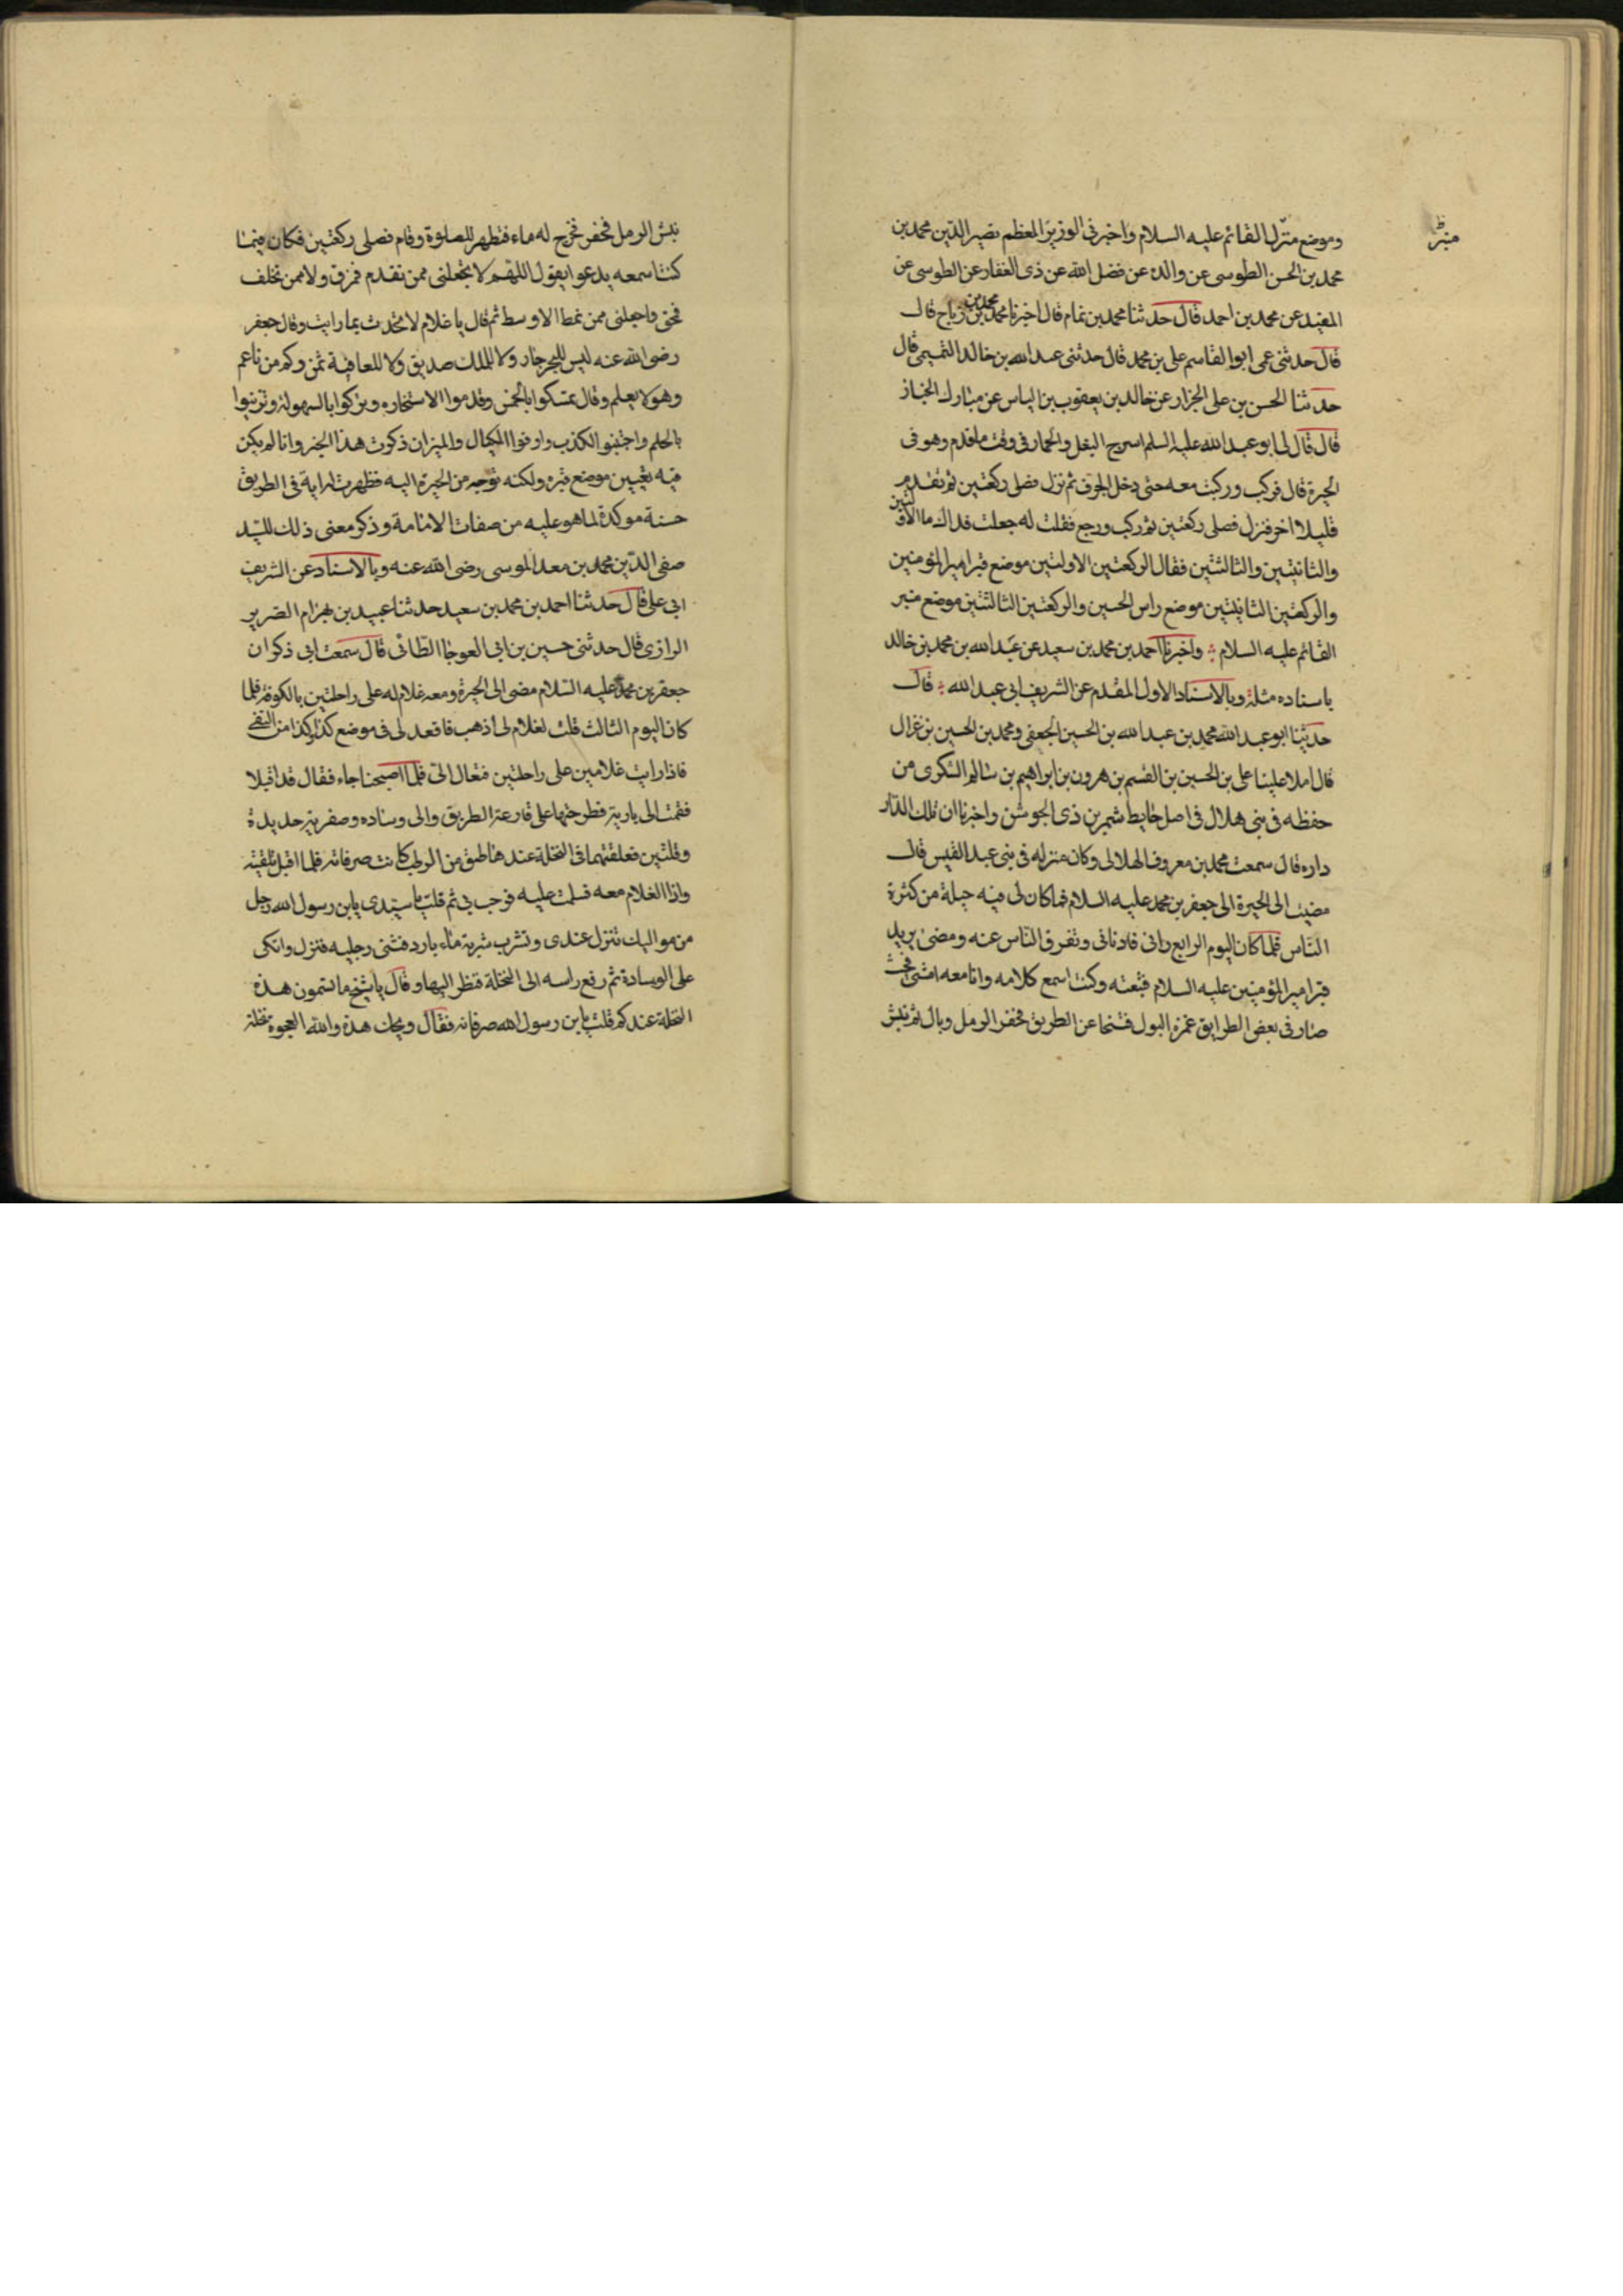 منبر
وموضع منزل القائم عليه السلام واخبرنى الوزير المعظم نصير الدين محمد بن
محمد بن الحسن الطوسى عن والده عن فضل الله عن ذى الفقار عن الطوسى عن
المفيد عن محمد بن احمد قال حدثنا محمد بن تمام قال اخبرنا محمد بن محمد بن رباح قال
قال حدثنى عمى ابوا القاسم على بن محمد قال حدثنى عبد الله بن خالد التميمى قال
حدثنا الحسن بن على الخزاز عن خالد بن يعقوب بن الياس عن مبارك الخباز
قال قال لى ابو عبد الله عليه السلم اسرج البغل والحمار فى وقت ما قدم وهو فى
الحيرة قال فركب وركبت معه حتى دخل الجرف ثم نزل فصلى ركعتين ثم تقدم
قليلا اخر فنزل فصلى ركعتين ثم ركب ورجع فقلت له جعلت فداك ما الاولتين
والثانيتين والثالثتين فقال الركعتين الاولتين موضع قبر امير المؤمنين
والركعتين الثانيتين موضع راس الحسين والركعتين الثالثتين موضع منبر
القائم عليه السلام واخبرنا احمد بن محمد بن سعيد عن عبد الله بن محمد بن خالد
باسناده مثله وبالاسناد الاول المقدم عن الشريف ابى عبد الله قال
حدثنا ابو عبد الله محمد بن عبد الله بن الحسين الجعفى ومحمد بن الحسين بن غزال
قال املا علينا على بن الحسين بن القسم بن هرون بن ابراهيم بن سالم السكرى من
حفظه فى بنى هلال فى اصل حايط شمر بن ذى الجوشن واخبرنا ان تلك الدار
داره قال سمعت محمد بن معروف الهلالى وكان منزله فى بنى عبد القيس قال
مضيت الى الحيرة الى جعفر بن محمد عليه السلام فما كان لى فيه حيلة من كثرة
الناس فلما كان اليوم الرابع رانى فادنانى وتفرق الناس عنه ومضى يريد
قبر امير المؤمنين عليه السلام فتبعته وكنت اسمع كلامه وانا معه امشى فحيث
صار فى بعض الطريق غمزه البول فتنحا عن الطريق فحفر الرمل وبال ثم نبش
نبش الرمل فحفر فخرج له ماء فتطهر للصلوة وقام فصلى ركعتين فكان فيما
كنت اسمعه يدعوا يقول اللهم لا تجعلنى ممن تقدم فمرق ولا ممن تخلف
فمحق واجعلنى ممن نمط الاوسط ثم قال يا غلام لا تحدث بما رايت وقال جعفر
رضى الله عنه ليس للبحر جار ولا للملك صديق ولا للعافية ثمن وكم من ناعم
وهو لا يعلم وقال تمسكوا بالخمس وقدموا الاستخاره وتبركوا بالسهولة وتزينوا
بالحلم واجتنبوا الكذب واوفوا المكيال والميزان ذكرت هذا الخبر وانا لم يكن
فيه تعيين موضع قبره ولكنه توجه من الحيرة اليه فظهرت له اية فى الطريق
حسنة موكدة لما هو عليه من صفات الامامة وذكر معنى ذلك للسيد
صفى الدين محمد بن معد الموسى رضى الله عنه وبالاسناد عن الشريف
ابى على قال حدثنا احمد بن محمد بن سعيد حدثنا عبيد بن بهرام الضرير
الرازى قال حدثنى حسين بن ابى العوجا الطائى قال سمعت ابى ذكر ان
جعفر بن محمد عليه السلام مضى الى الحيرة ومعه غلام له على راحلتين بالكوفه فلما
كان اليوم الثالث قلت لغلام لى اذهب فاقعد لى فى موضع كذا وكذا من
فاذا رايت غلامين على راحلتين فتعال الى فلما اصبحنا جاء فقال قد اقبلا
فقمت الى بارية فطرحتها على قارعة الطريق والى وساده وصفرية جديدة
وقلتين فعلقتهما فى النخلة عندها طبق من الرطب كانت صرفانه فلما اقبل تلقيته
واذا الغلام معه فسلمت عليه فرحب بى ثم قلت يا سيدى يا بن رسول الله رجل
من مواليك تنزل عندى وتشرب شربة ماء بارد فثنى رجليه فنزل واتكى
على الوسادة ثم رفع راسه الى النخلة فنظر اليها وقال يا شيخ ما تسمون هذه
النخلة عندكم قلت يا بن رسول الله صرفانه فقال ويحك هذه والله العجوة نخلة